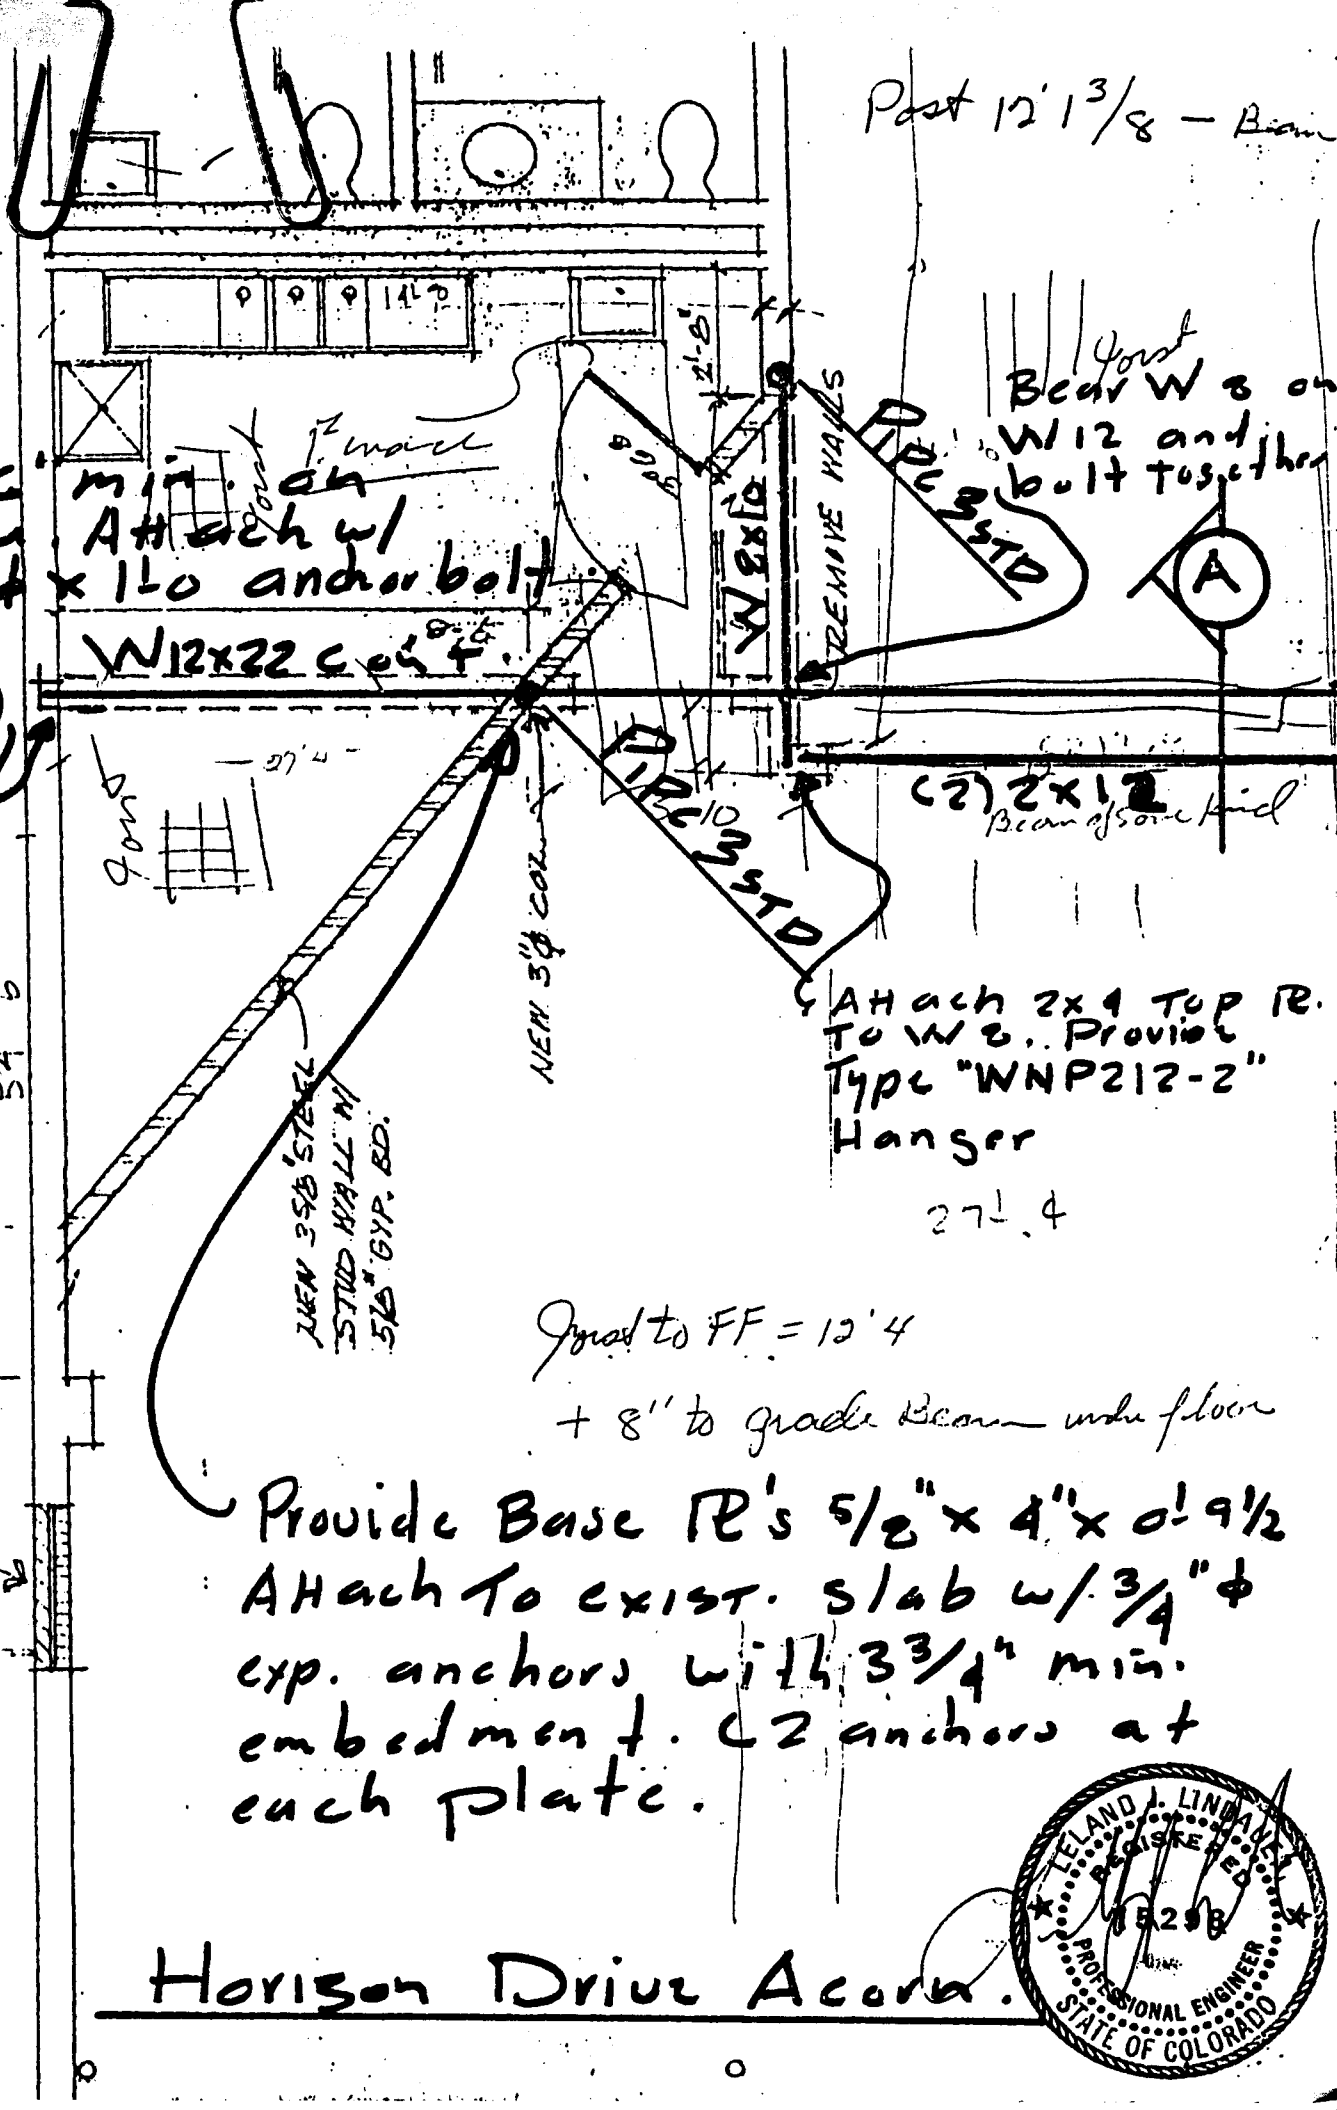 Post 12' 1 3/8 - Beam
Joist
Bear W 8 on
W12 and
bolt together
2'-8"
REMOVE WALLS
Pipe 3 STD
W 8x10
A
min. on
Attach w/
x 1'-0 anchor bolt
W12x22 Cont.
27'4"
(2) 2x12
Beam of some kind
Pipe 3 STD
NEW 3"φ COL.
Attach 2x4 Top PL.
To W 8. Provide
Type "WNP212-2"
Hanger
27'.4
NEW 3 5/8" STEEL
STUD WALL W/
5/8" GYP. BD.
Joist to FF = 12'4
+ 8" to grade Beam under floor
Provide Base PL's 5/8" x 4" x 0'-9 1/2
Attach To exist. slab w/ 3/4" φ
exp. anchors with 3 3/4" min.
embedment. (2 anchors at
each plate.
Horizon Drive Acorn.
LELAND J. LINDAUER
REGISTERED
15298
PROFESSIONAL ENGINEER
STATE OF COLORADO